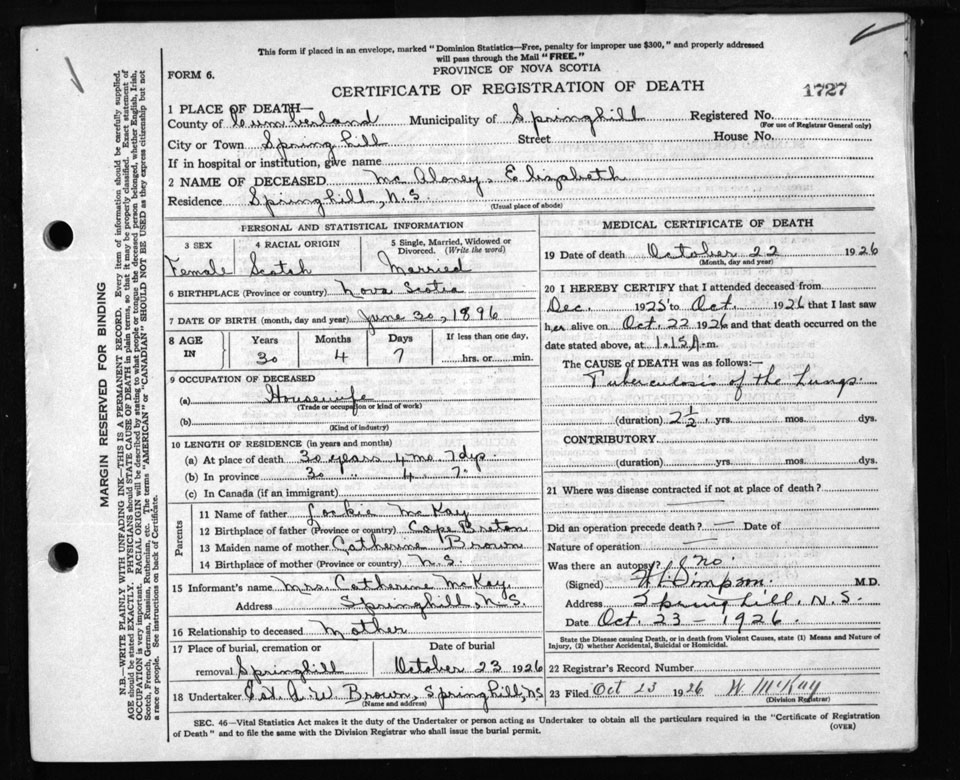 This form if placed in an envelope, marked "Dominion Statistics—Free, penalty for improper use $300," and properly addressed
will pass through the Mail "FREE."
PROVINCE OF NOVA SCOTIA
FORM 6.
CERTIFICATE OF REGISTRATION OF DEATH
1727
1 PLACE OF DEATH—
County of Cumberland Municipality of Springhill Registered No.
(For use of Registrar General only)
City or Town Spring hill Street House No.
If in hospital or institution, give name
2 NAME OF DECEASED McAloney, Elizabeth
Residence Springhill, N.S.
(Usual place of abode)
PERSONAL AND STATISTICAL INFORMATION
3 SEX 4 RACIAL ORIGIN 5 Single, Married, Widowed or
Divorced. (Write the word)
Female Scotch Married
6 BIRTHPLACE (Province or country) Nova Scotia
7 DATE OF BIRTH (month, day and year) June 30, 1896
8 AGE IN Years Months Days If less than one day,
30 4 7 hrs. or min.
9 OCCUPATION OF DECEASED
(a) Housewife
(Trade or occupation or kind of work)
(b)
(Kind of industry)
10 LENGTH OF RESIDENCE (in years and months)
(a) At place of death 30 years 4 mo. 7 dys.
(b) In province 30 " 4 7 "
(c) In Canada (if an immigrant)
Parents
11 Name of father McKay
12 Birthplace of father (Province or country) Cape Breton
13 Maiden name of mother Catherine Brown
14 Birthplace of mother (Province or country) N.S.
15 Informant's name Mrs. Catherine McKay,
Address Springhill, N.S.
16 Relationship to deceased Mother
17 Place of burial, cremation or Date of burial
removal Springhill October 23 1926
18 Undertaker A. W. Brown, Springhill, N.S
(Name and address)
MEDICAL CERTIFICATE OF DEATH
19 Date of death October 22 1926
(Month, day and year)
20 I HEREBY CERTIFY that I attended deceased from
Dec. 1925 to Oct. 1926 that I last saw
her alive on Oct. 22 1926 and that death occurred on the
date stated above, at 1.15 A.m.
The CAUSE of DEATH was as follows:—
Tuberculosis of the Lungs.
(duration) 2½ yrs. mos. dys.
CONTRIBUTORY
(duration) yrs. mos. dys.
21 Where was disease contracted if not at place of death?
—
Did an operation precede death? — Date of
Nature of operation —
Was there an autopsy? no
(Signed) Simpson. M.D.
Address Springhill, N.S.
Date Oct. 23 – 1926.
State the Disease causing Death, or in death from Violent Causes, state (1) Means and Nature of
Injury, (2) whether Accidental, Suicidal or Homicidal.
22 Registrar's Record Number
23 Filed Oct 23 1926 W. McKay
(Division Registrar)
SEC. 46—Vital Statistics Act makes it the duty of the Undertaker or person acting as Undertaker to obtain all the particulars required in the "Certificate of Registration
of Death" and to file the same with the Division Registrar who shall issue the burial permit.
(OVER)
MARGIN RESERVED FOR BINDING
N.B.—WRITE PLAINLY WITH UNFADING INK—THIS IS A PERMANENT RECORD. Every item of information should be carefully supplied.
AGE should be stated EXACTLY. PHYSICIANS should STATE CAUSE OF DEATH in plain terms, so that it may be properly classified. Exact statement of
OCCUPATION is very important. RACIAL ORIGIN will be described by stating to what people or tongue the deceased person belonged, whether English, Irish,
Scotch, French, German, Russian, Ruthenian, etc. The terms "AMERICAN" or "CANADIAN" SHOULD NOT BE USED as they express citizenship but not
a race or people. See instructions on back of Certificate.